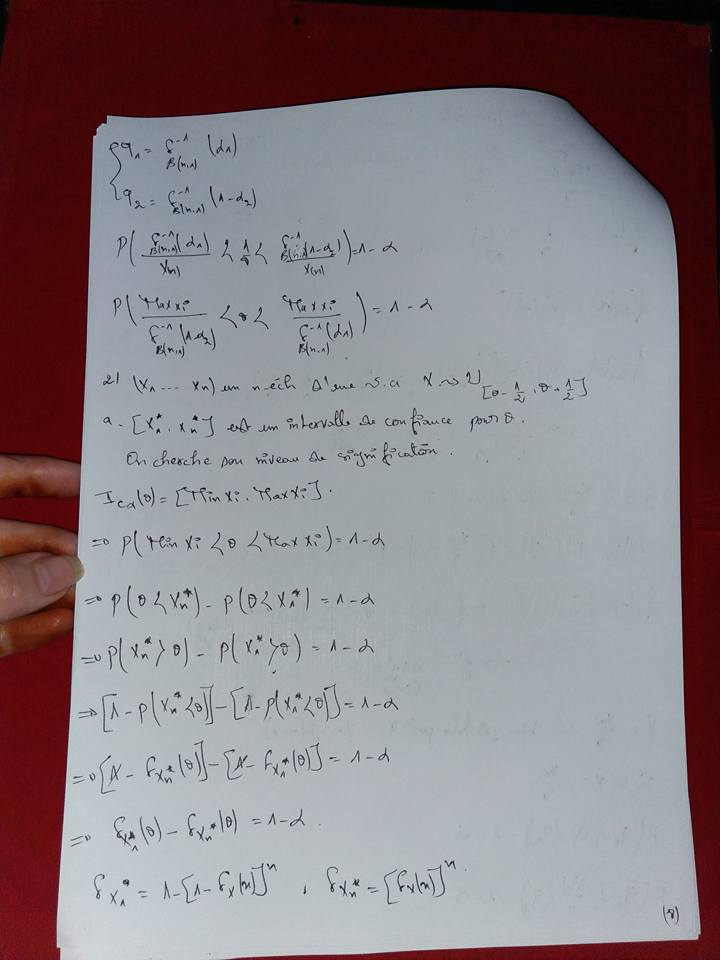 { q₁ = F⁻¹_{B(n,1)} (α₁)
q₂ = F⁻¹_{B(n,1)} (1-α₂)
P( F⁻¹_{B(n,1)}(α₁) / X(n) < 1/θ < F⁻¹_{B(n,1)}(1-α₂) / X(n) ) = 1-α
P( Max xi / F⁻¹_{B(n,1)}(1-α₂) < θ < Max xi / F⁻¹_{B(n,1)}(α₁) ) = 1-α
2/ (X₁ ... Xn) un n-éch d'une v.a X ~ U[θ-1/2, θ+1/2]
a- [X₁*, Xn*] est un intervalle de confiance pour θ.
On cherche son niveau de signification.
I_{cα}(θ) = [Min xi, Max xi].
=> P(Min xi < θ < Max xi) = 1-α
=> P(θ < Xn*) - P(θ < X₁*) = 1-α
=> P(Xn* > θ) - P(X₁* > θ) = 1-α
=> [1 - P(Xn* < θ)] - [1 - P(X₁* < θ)] = 1-α
=> [1 - F_{Xn*}(θ)] - [1 - F_{X₁*}(θ)] = 1-α
=> F_{X₁*}(θ) - F_{Xn*}(θ) = 1-α.
F_{X₁*} = 1-[1-F_X(x)]ⁿ , F_{Xn*} = [F_X(x)]ⁿ.
(8)